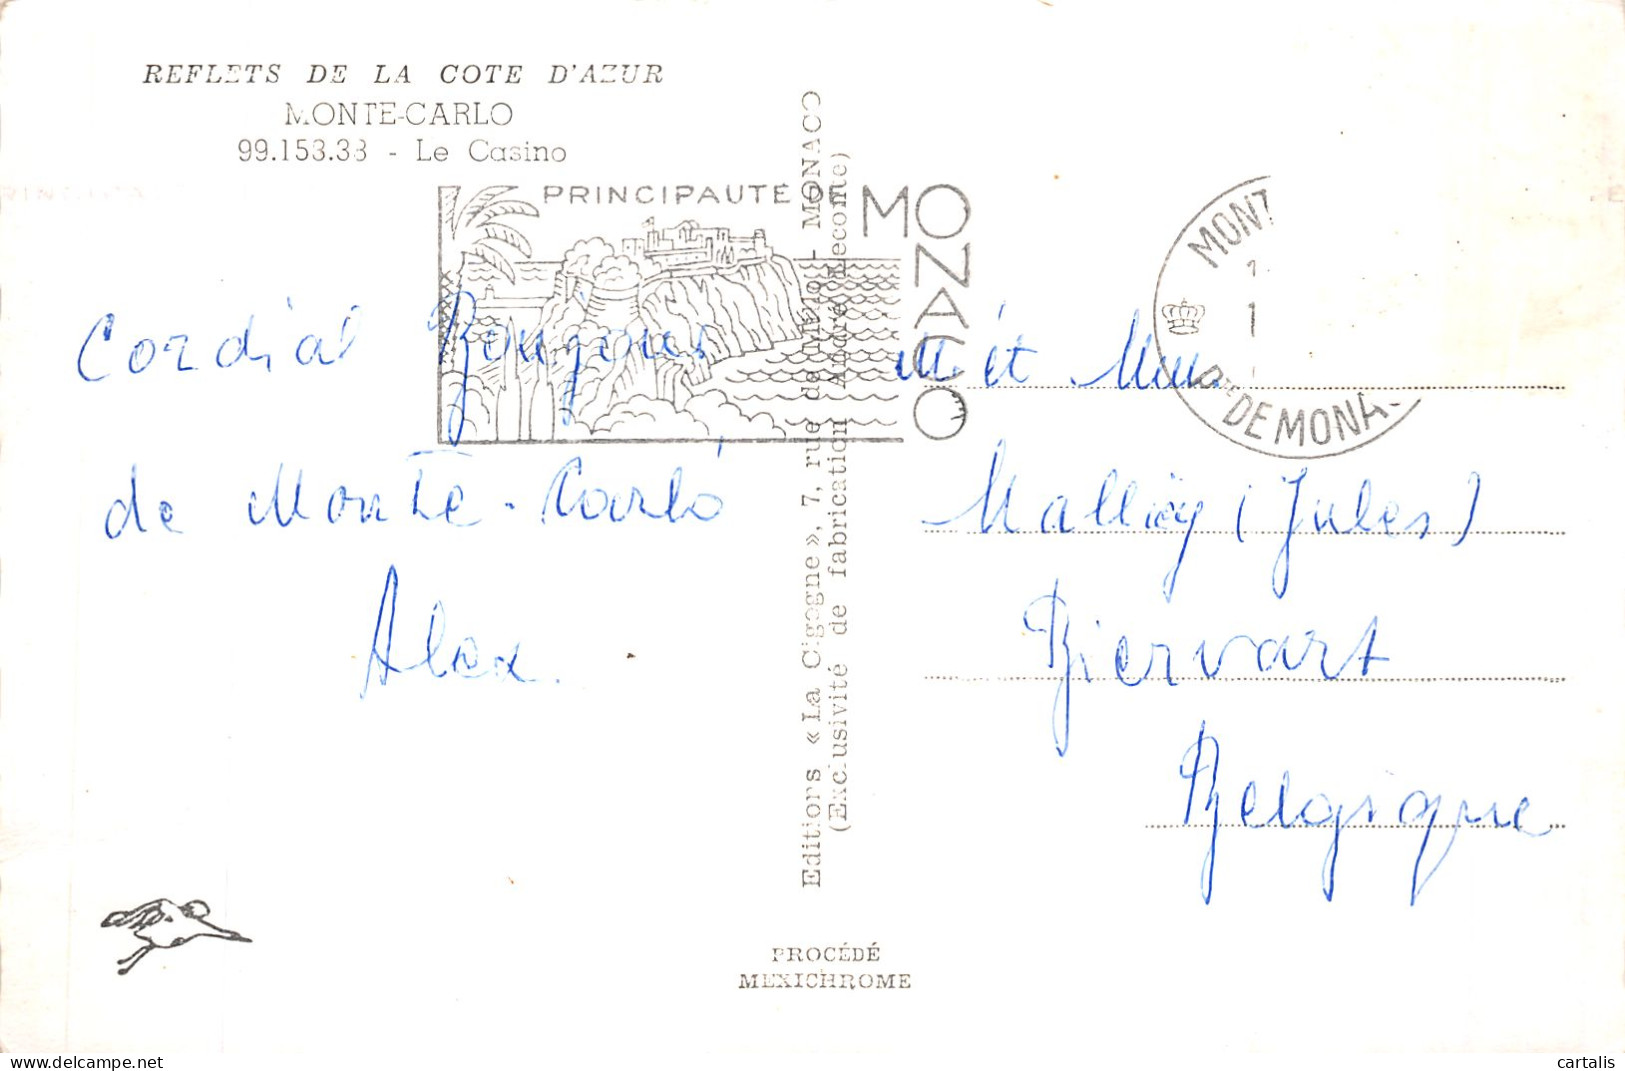 REFLETS DE LA COTE D'AZUR
MONTE-CARLO
99.153.33 - Le Casino
PRINCIPAUTÉ DE MONACO
MONT
1
DE MONA
Cordial Bonjour
de Monte-Carlo
Alex.
M. et Mme
(Jules)
Biervart
Belgique
Editions « La Cigogne », 7, rue de - MONACO
(Exclusivité de fabrication André Leconte)
PROCÉDÉ
MEXICHROME
cartalis